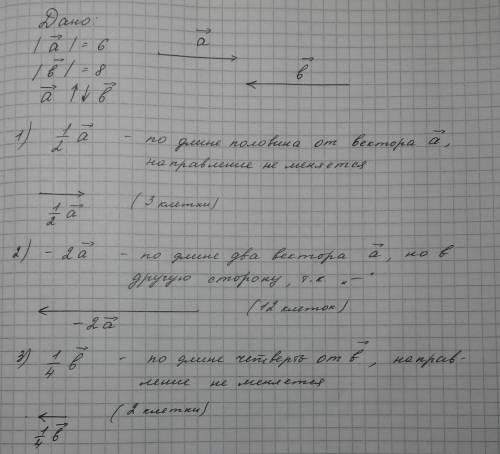 Дано:
|a⃗| = 6
a⃗
|b⃗| = 8
b⃗
a⃗ ↑↓ b⃗
1) 1/2 a⃗ – по длине половина от вектора a⃗,
направление не меняется
1/2 a⃗ (3 клетки)
2) – 2a⃗ – по длине два вектора a⃗, но в
другую сторону, т.к. „–“
(12 клеток)
– 2a⃗
3) 1/4 b⃗ – по длине четверть от b⃗, направ-
ление не меняется
(2 клетки)
1/4 b⃗